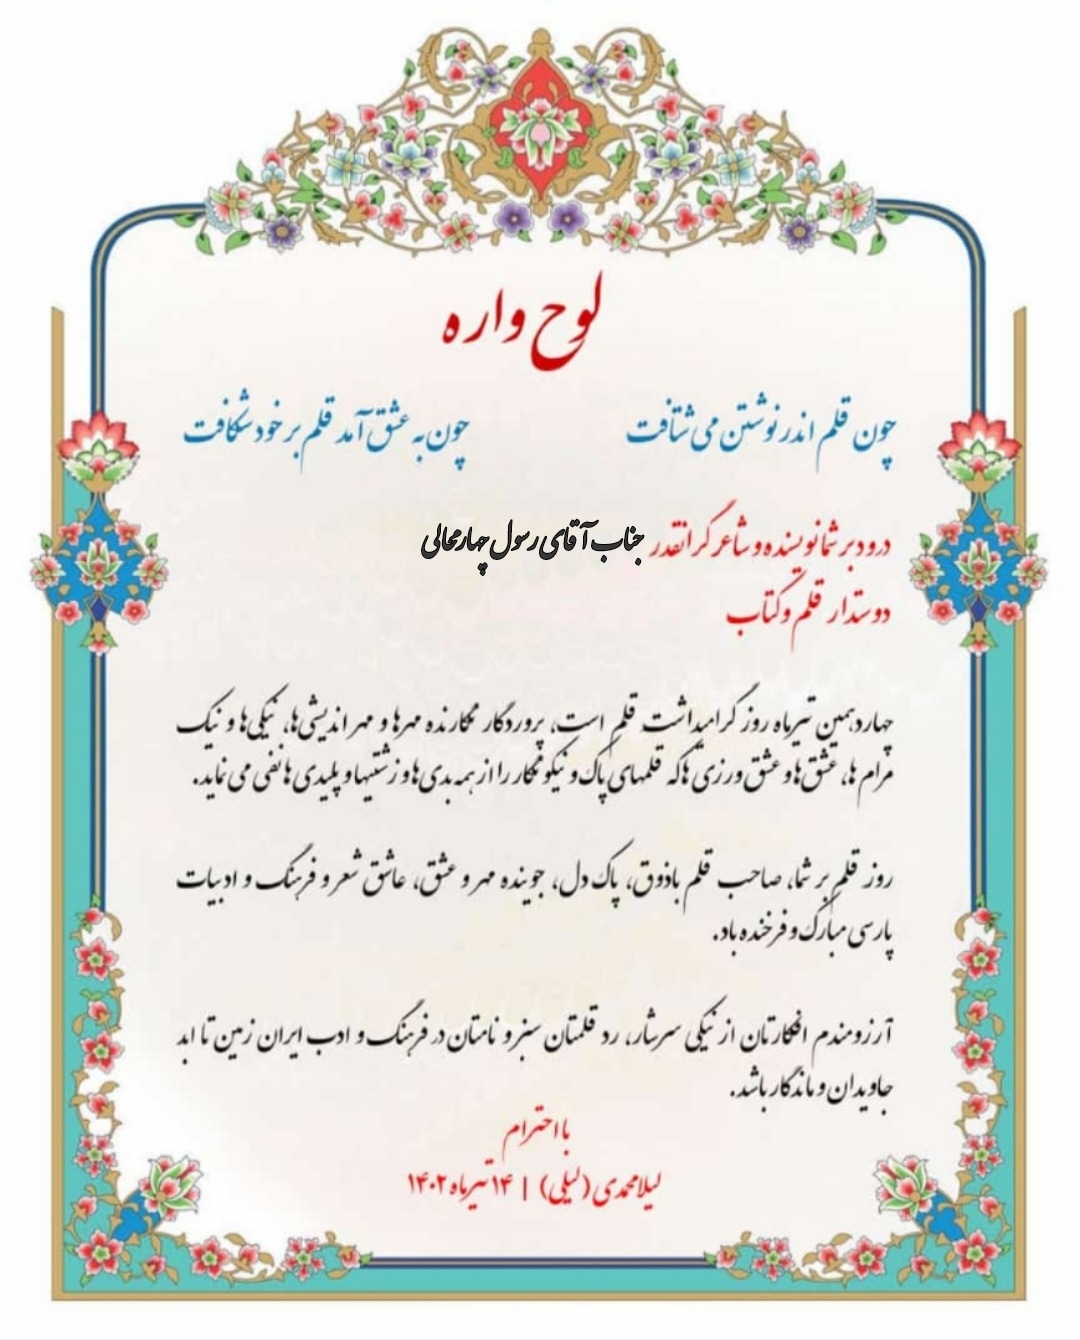 لوح واره
چون قلم اندر نوشتن می شتافت چون به عشق آمد قلم بر خود شکافت
درود بر شما نویسنده و شاعر گرانقدر جناب آقای رسول چهارمحالی
دوستدار قلم و کتاب
چهاردهمین تیرماه روز گرامیداشت قلم است، پروردگار نگارنده مهرها و مهراندیشی‌ها، نیکی‌ها و نیک
مرام ها، عشق ها و عشق ورزی ها که قلمهای پاک و نیکو نگار را از همه بدی ها و زشتیها و پلیدی ها نفی می نماید.
روز قلم بر شما، صاحب قلم باذوق، پاک دل، جوینده مهر و عشق، عاشق شعر و فرهنگ و ادبیات
پارسی مبارک و فرخنده باد.
آرزومندم افکارتان از نیکی سرشار، رد قلمتان سبز و نامتان در فرهنگ و ادب ایران زمین تا ابد
جاویدان و ماندگار باشد.
با احترام
لیلا محمدی (لیلی) | ۱۴ تیرماه ۱۴۰۲